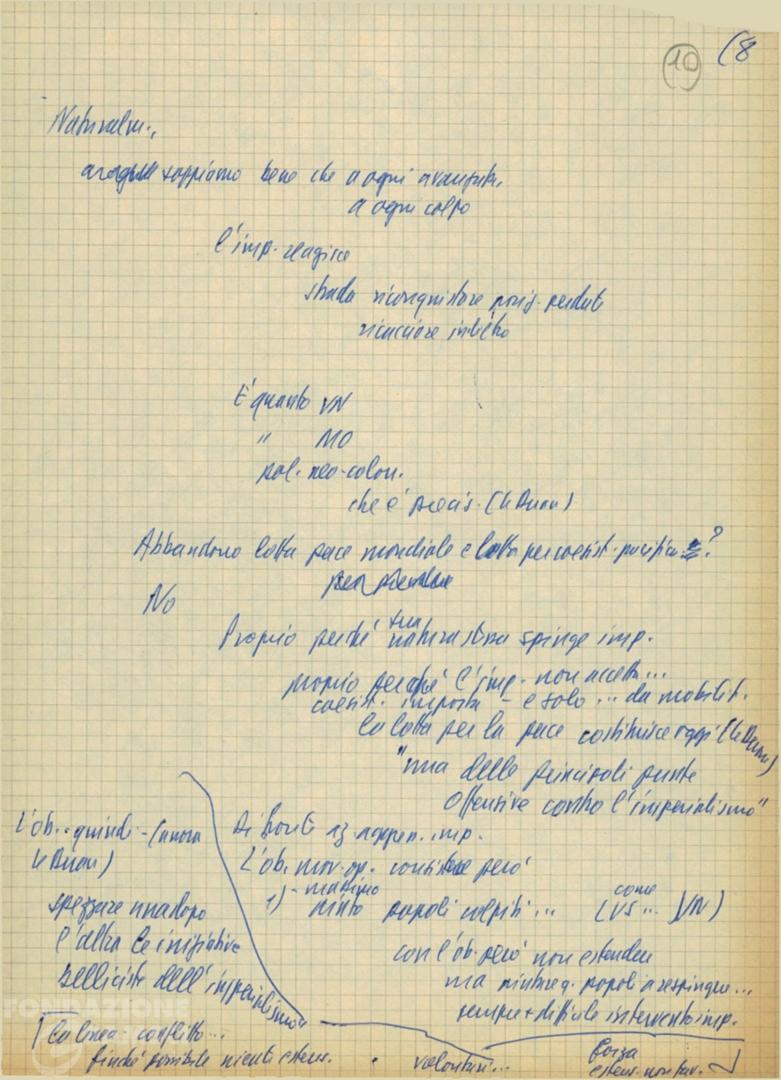 10 (8
Naturalm.,
sappiamo bene che a ogni avanzata,
a ogni colpo
l'imp. reagisce
strada riconquistare posiz. perdute
ricucire
È quanto VN
" MO
pol. neo-colon.
che è precis. (Le Duan)
Abbandono lotta pace mondiale e lotta per coesist. pacifica?
No
Proprio perché sua natura spinge imp.
proprio perché l'imp. non accetta...
coesist. imposta - e solo ... da mobilit.
la lotta per la pace costituisce oggi (Le Duan)
"una delle principali punte
offensive contro l'imperialismo"
L'ob. quindi - (ancora
Le Duan)
spezzare una dopo
l'altra le iniziative
belliciste dell'imperialismo
Di fronte
L'ob. mov. op. consiste però
1) - massimo
aiuto popoli colpiti ... (come
VS ... VN)
con l'ob. però non estendere
ma aiutare q. popoli a respingere...
sempre + difficile intervento imp.
La linea conflitto...
finché possibile niente estens. volontari... forza
estens. non fav.
FONDAZIONE